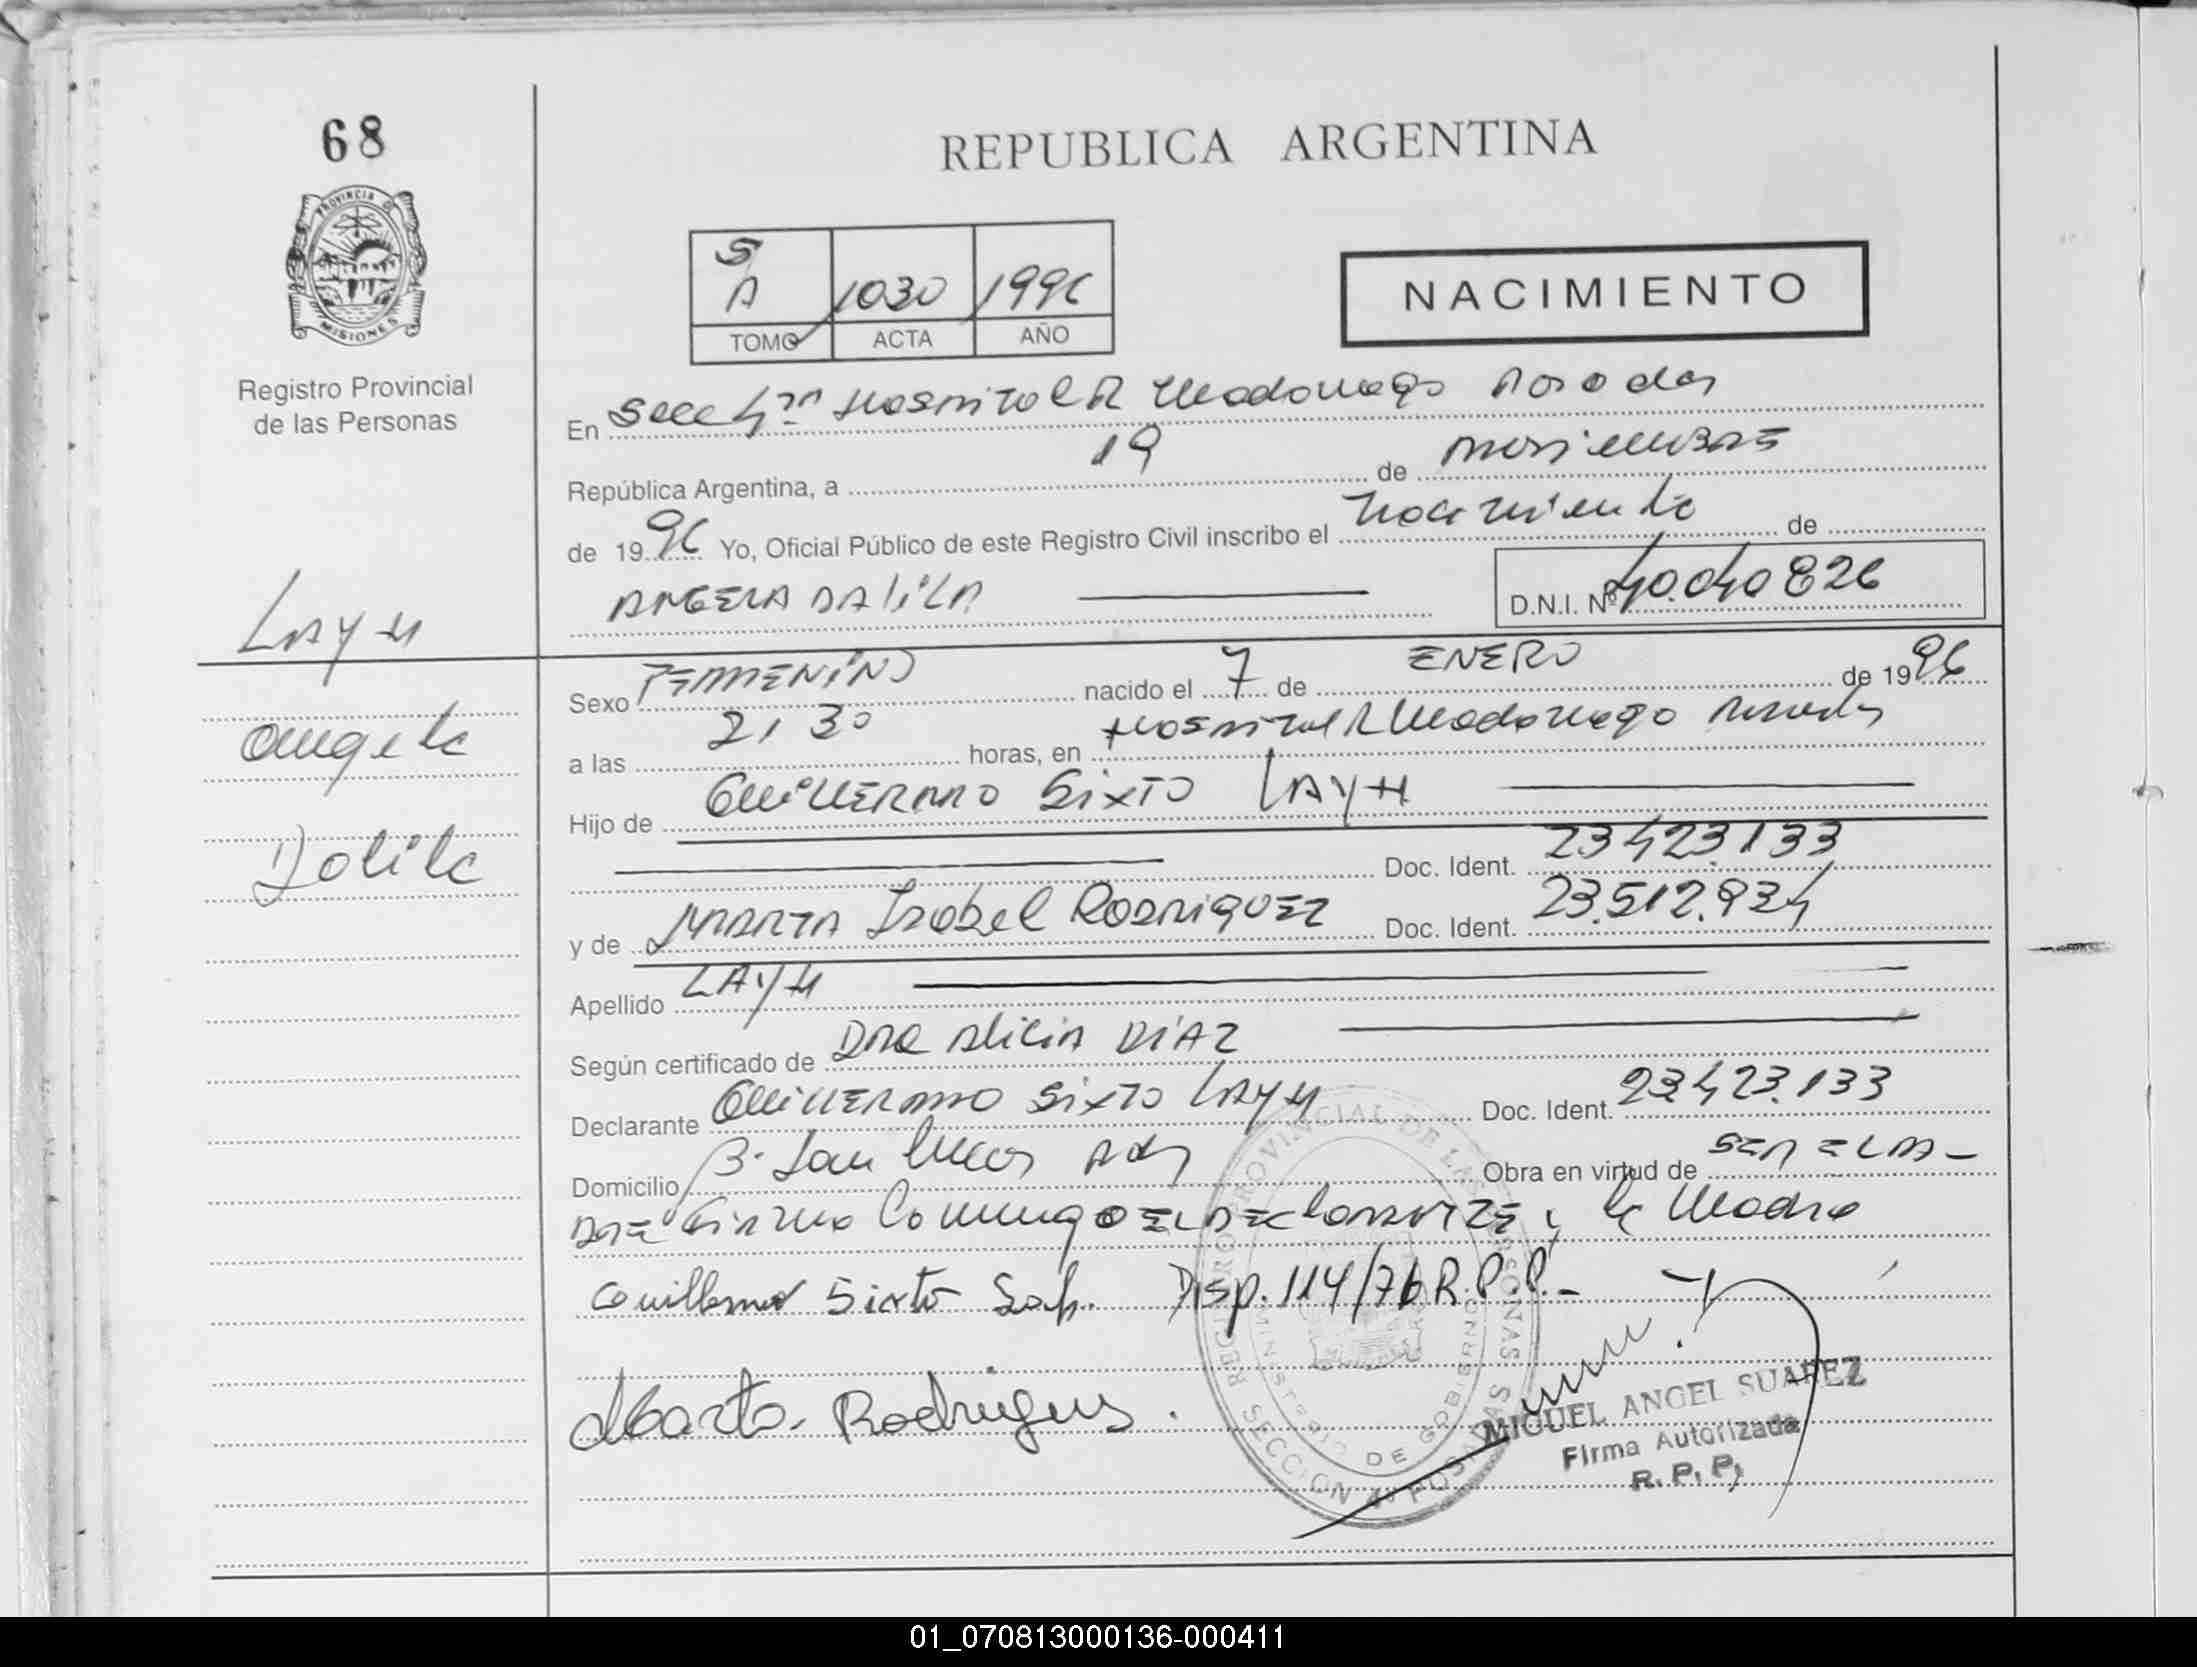 68
REPUBLICA ARGENTINA
PROVINCIA D
MISIONES
Registro Provincial
de las Personas
S/A 1030 1996
TOMO ACTA AÑO
NACIMIENTO
En Secc 4ta Hospital R Madariaga Posadas
República Argentina, a 19 de Noviembre
de 1996 Yo, Oficial Público de este Registro Civil inscribo el nacimiento de
ANGELA DALILA
D.N.I. Nº 40.040826
LAYH
Angela
Dalila
Sexo FEMENINO nacido el 7 de ENERO de 1996
a las 21 30 horas, en Hospital R Madariaga Posadas
Hijo de GUILLERMO SIXTO LAYH
Doc. Ident. 23423.133
y de MARTA Isabel RODRIGUEZ Doc. Ident. 23.512.934
Apellido LAYH
Según certificado de DRA ALICIA DIAZ
Declarante GUILLERMO SIXTO LAYH Doc. Ident. 23.423.133
Domicilio B. San Lucas Obra en virtud de SER EL PA-
DRE Firma Conmigo EL DECLARANTE y la Madre
Guillermo Sixto Layh. Disp. 114/76 R.P.P.-
Marta Rodriguez.
REGISTRO PROVINCIAL DE LAS PERSONAS
MINISTERIO DE GOBIERNO
SECCION 4º POSADAS
MIGUEL ANGEL SUAREZ
Firma Autorizada
R. P. P.
01_070813000136-000411